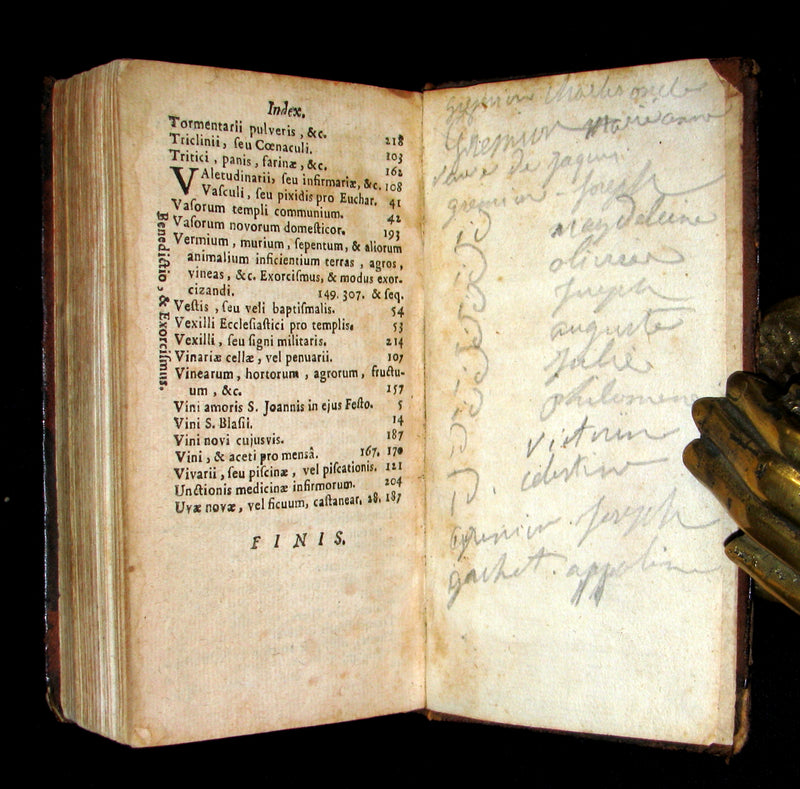 Index.
Tormentarii pulveris, &c. 218
Triclinii, ſeu Cœnaculi. 103
Tritici, panis, farinæ, &c. 162
VAletudinatii, ſeu infirmariæ, &c. 108
Vaſculi, ſeu pixidis pro Euchar. 41
Vaſorum templi communium. 42
Vaſorum novorum domeſticor. 193
Vermium, murium, ſepentum, & aliorum
animalium inficientium terras, agros,
vineas, &c. Exorciſmus, & modus exor-
cizandi. 149. 307. & ſeq.
Veſtis, ſeu veli baptiſmalis. 54
Vexilli Eccleſiaſtici pro templis. 53
Vexilli, ſeu ſigni militaris. 214
Vinariæ cellæ, vel penuarii. 107
Vinearum, hortorum, agrorum, fructu-
um, &c. 157
Vini amoris S. Joannis in ejus Feſto. 5
Vini S. Blaſii. 14
Vini novi cujusvis. 187
Vini, & aceti pro mensâ. 167. 170
Vivarii, ſeu piſcinæ, vel piſcationis. 121
Unctionis medicinæ infirmorum. 204
Uvæ novæ, vel ficuum, caſtanear. 28. 187
FINIS.
Benedictio, & Exorciſmus.
gremion Charles oncle
Gremion marie anne
de jaques
gremion Joseph
magdeleine
olivier
Joseph
auguste
Julie
philomene
victorin
celestine
gremion Joseph
gachet appoline